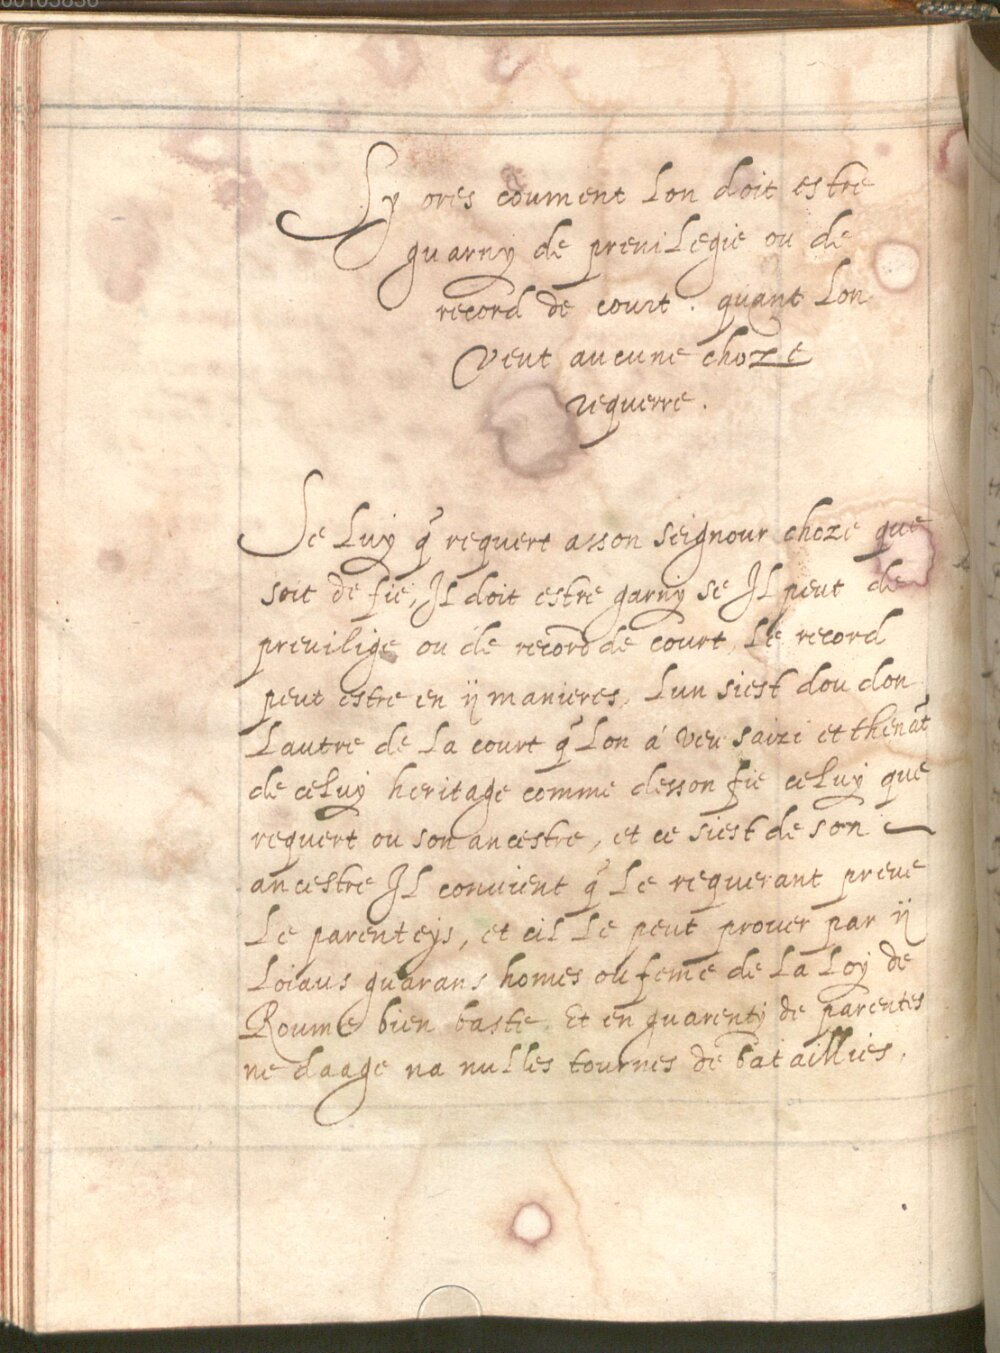 00103836
Sy ores coument Lon doit estre
guarny de preuiLegie ou de
record de court. quant Lon
Veut aucune choze
requerre.
Se Luy q̃ requert asson seignour choze que
soit de fie, JL doit estre garny se JL peut de
preuilige ou de record de court, Le record
peut estre en ij manieres, Lun siest dou don
Lautre de La court q̃ Lon á veu saizi et thenãt
de ceLuy heritage comme desson fie ceLuy que
requert ou son ancestre, et ce siest de son
ancestre JL conuient q̃ Le requerant preue
Le parenteys, et ciL Le peut prouer par ij
Loiaus guarans homes ou feme de La Loy de
Roume bien baste. Et en guarenty de parentes
ne daage na nuLLes tournes de bataillies.